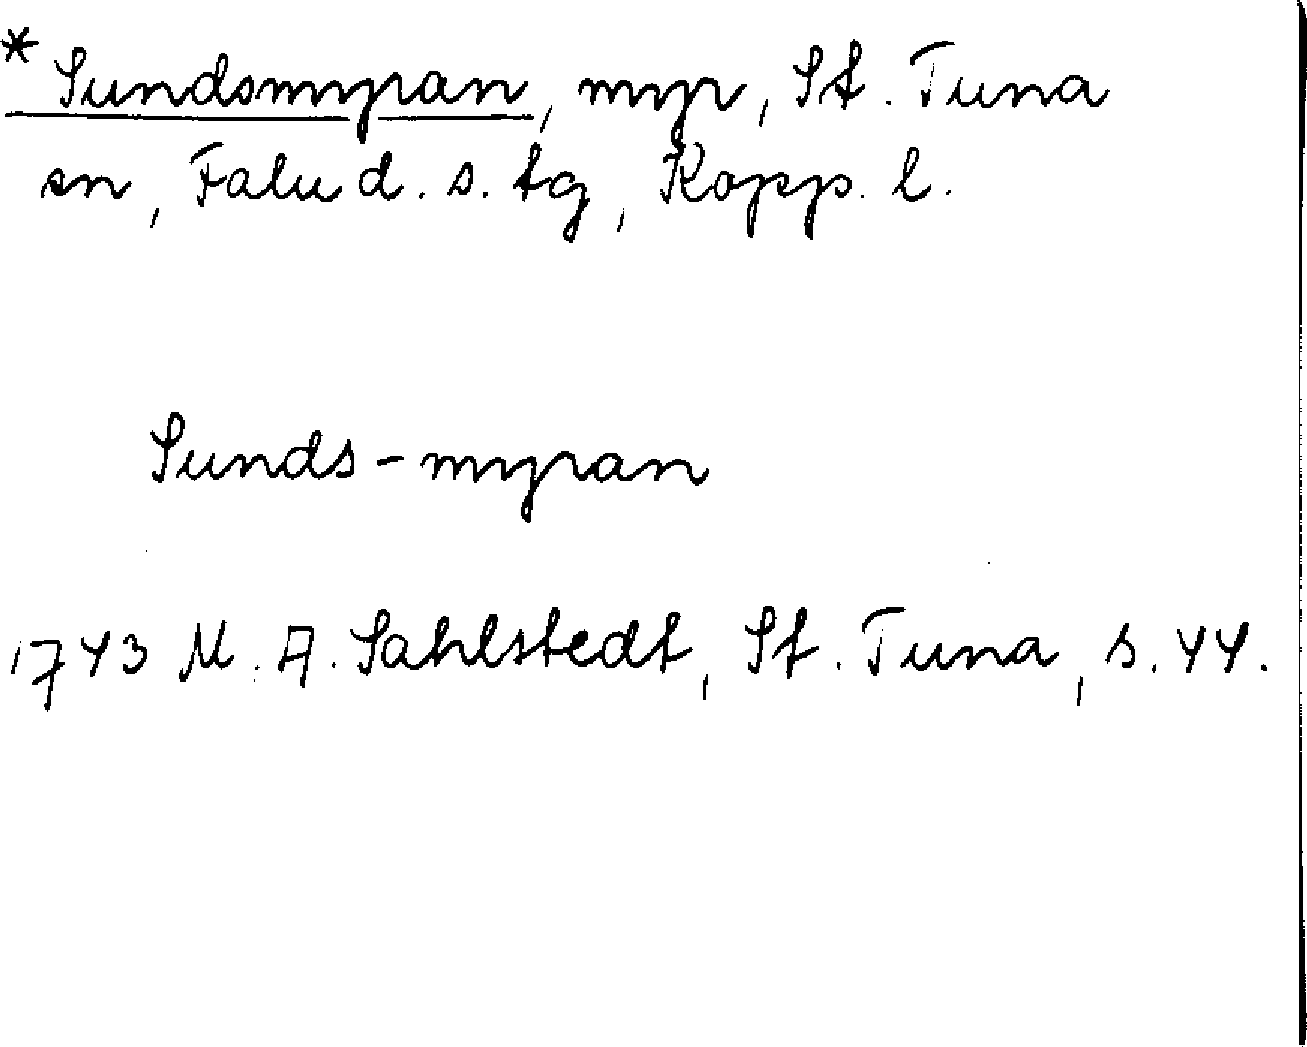 * Sundsmyran, myr, St. Tuna
sn, Falu d. s. tg, Kopp. l.
Sunds-myran
1743 M. A. Sahlstedt, St. Tuna, s. 44.